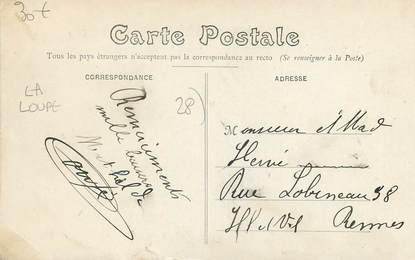 30€
Carte Postale
Tous les pays étrangers n'acceptent pas la correspondance au recto (Se renseigner à la Poste)
CORRESPONDANCE
ADRESSE
LA
LOUPE
28)
Remerciements
mille
Monsieur & Mad
Hervé
Rue Lobineau 38
Ille et Vil Rennes